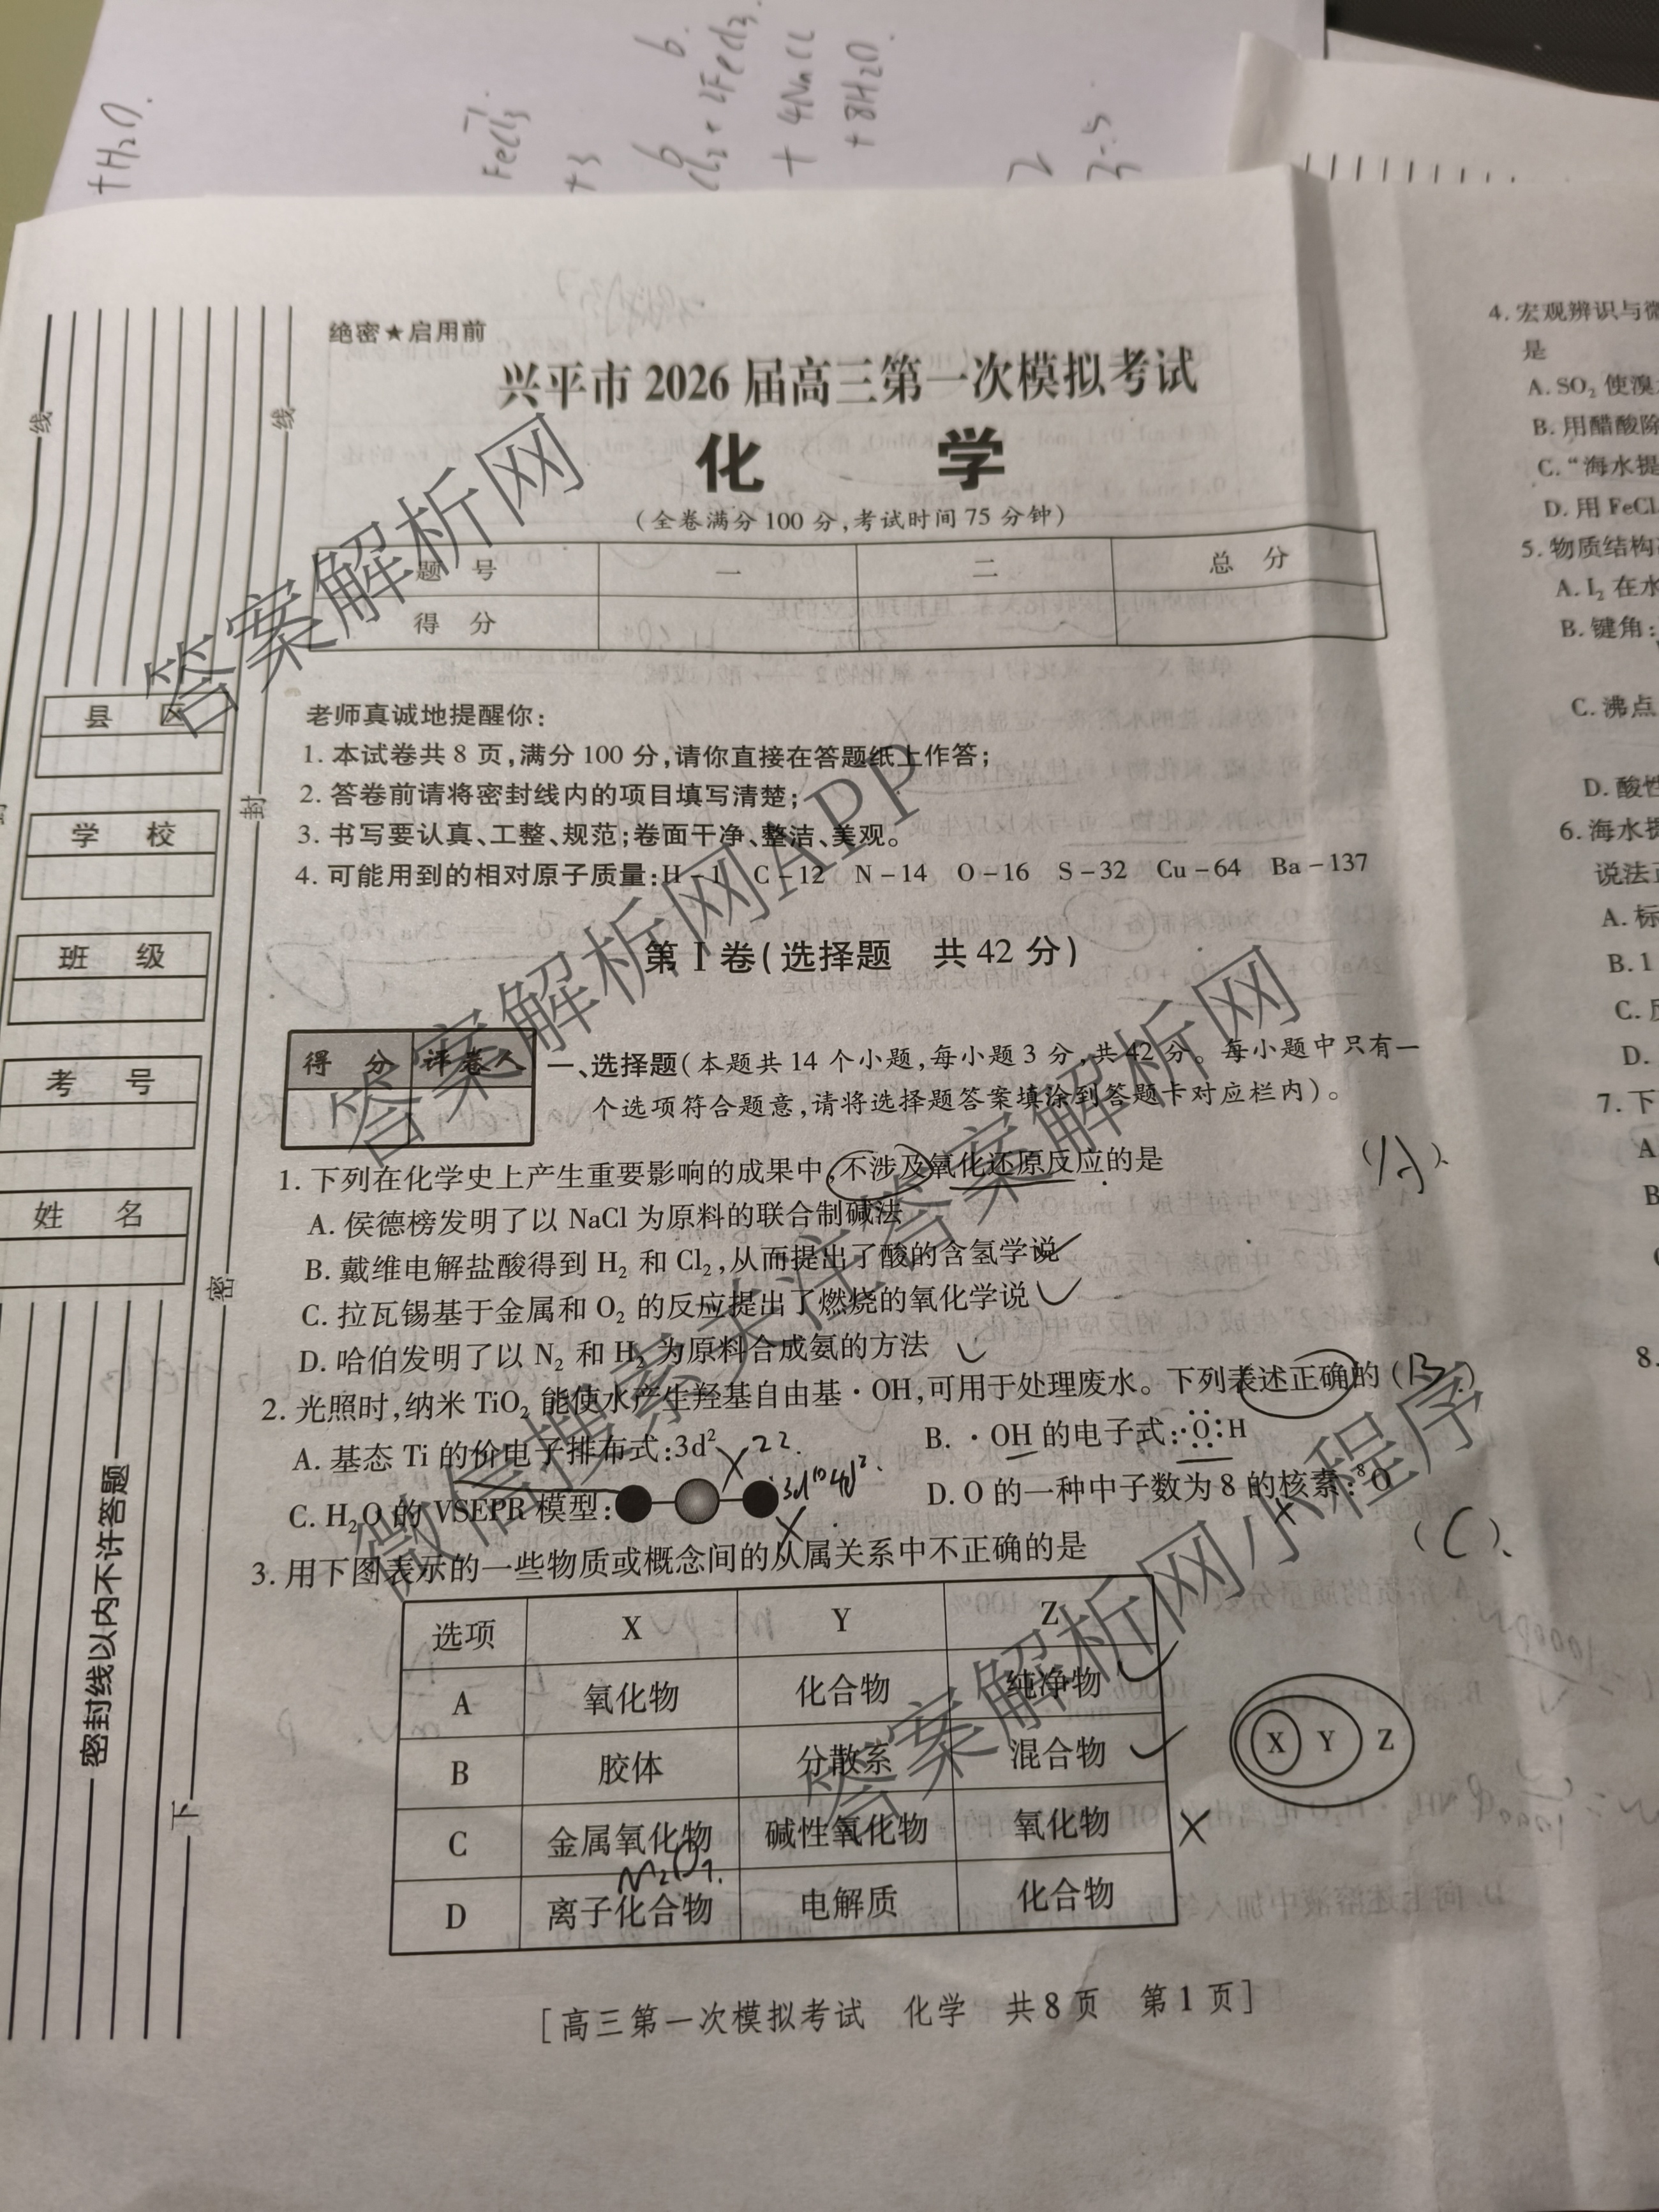 +H₂O.
FeCl₃
+3
6
6
Cl₂+2FeCl₃.
+4NaCl
+8H₂O.
绝密★启用前
兴平市 2026 届高三第一次模拟考试
化 学
(全卷满分 100 分,考试时间 75 分钟)
题 号 一 二 总 分
得 分
老师真诚地提醒你:
1. 本试卷共 8 页,满分 100 分,请你直接在答题纸上作答;
2. 答卷前请将密封线内的项目填写清楚;
3. 书写要认真、工整、规范;卷面干净、整洁、美观。
4. 可能用到的相对原子质量:H-1 C-12 N-14 O-16 S-32 Cu-64 Ba-137
第 I 卷(选择题 共 42 分)
得 分 评卷人
一、选择题(本题共 14 个小题,每小题 3 分,共 42 分。每小题中只有一
个选项符合题意,请将选择题答案填涂到答题卡对应栏内)。
1. 下列在化学史上产生重要影响的成果中,不涉及氧化还原反应的是
(A).
A. 侯德榜发明了以 NaCl 为原料的联合制碱法
B. 戴维电解盐酸得到 H₂ 和 Cl₂,从而提出了酸的含氢学说
C. 拉瓦锡基于金属和 O₂ 的反应提出了燃烧的氧化学说
D. 哈伯发明了以 N₂ 和 H₂ 为原料合成氨的方法
2. 光照时,纳米 TiO₂ 能使水产生羟基自由基·OH,可用于处理废水。下列表述正确的 (B)
A. 基态 Ti 的价电子排布式:3d² 22.
B. ·OH 的电子式:·O:H
3d¹⁰4d².
C. H₂O 的 VSEPR 模型:
D. O 的一种中子数为 8 的核素:⁸O
3. 用下图表示的一些物质或概念间的从属关系中不正确的是
(C).
选项 X Y Z
A 氧化物 化合物 纯净物
B 胶体 分散系 混合物
C 金属氧化物 碱性氧化物 氧化物
D 离子化合物 电解质 化合物
X Y Z
[高三第一次模拟考试 化学 共 8 页 第 1 页]
县 区
学 校
班 级
考 号
姓 名
密封线以内不许答题
线
线
封
密
下
4. 宏观辨识与微
是
A. SO₂ 使溴
B. 用醋酸除
C. “海水提
D. 用 FeCl
5. 物质结构
A. I₂ 在水
B. 键角:
C. 沸点
D. 酸性
6. 海水提
说法正
A. 标
B. 1
C.
D.
7. 下
A
B
8.
答案解析网
答案解析网APP
微信搜索关注答案解析网
答案解析网小程序